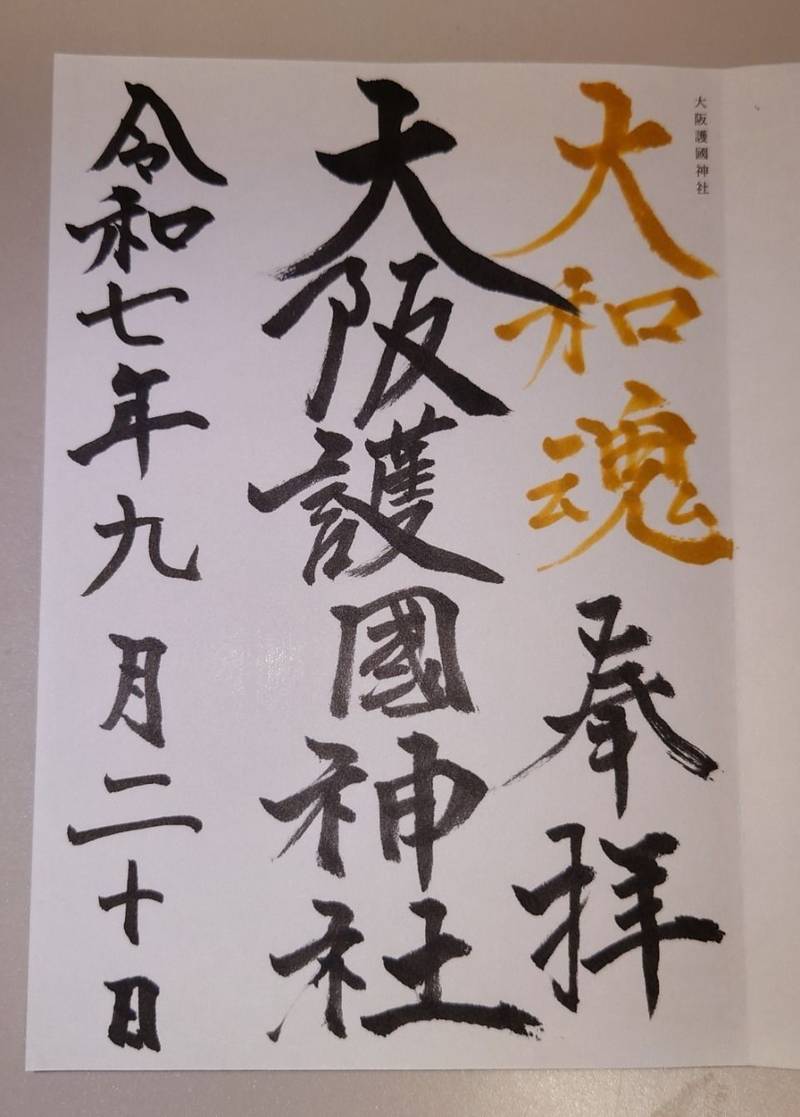 大阪護國神社
大和魂 奉拝
大阪護國神社
令和七年九月二十日